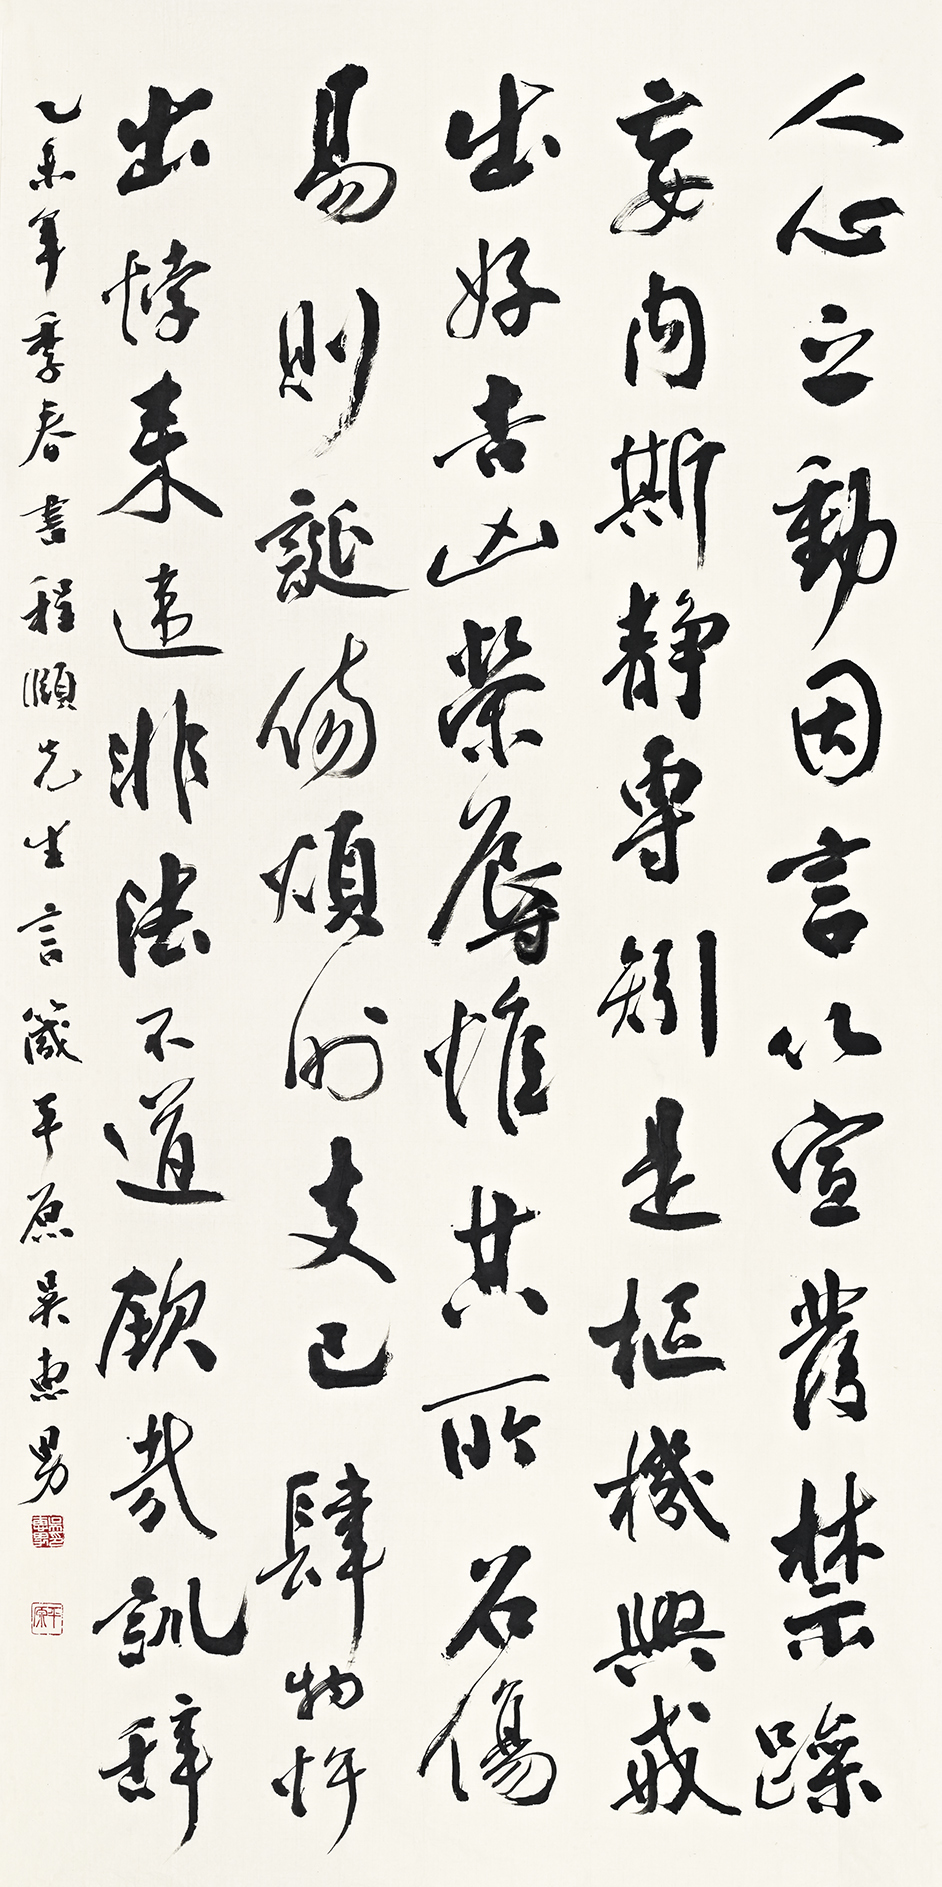 人心之動因言以宣發禁躁
妄內斯靜專矧是樞機興戎
出好吉凶榮辱惟其所召傷
易則誕傷煩則支己肆物忤
出悖來違非法不道欽哉訓辭
乙未年季春書程頤先生言箴平原吳惠男
平原